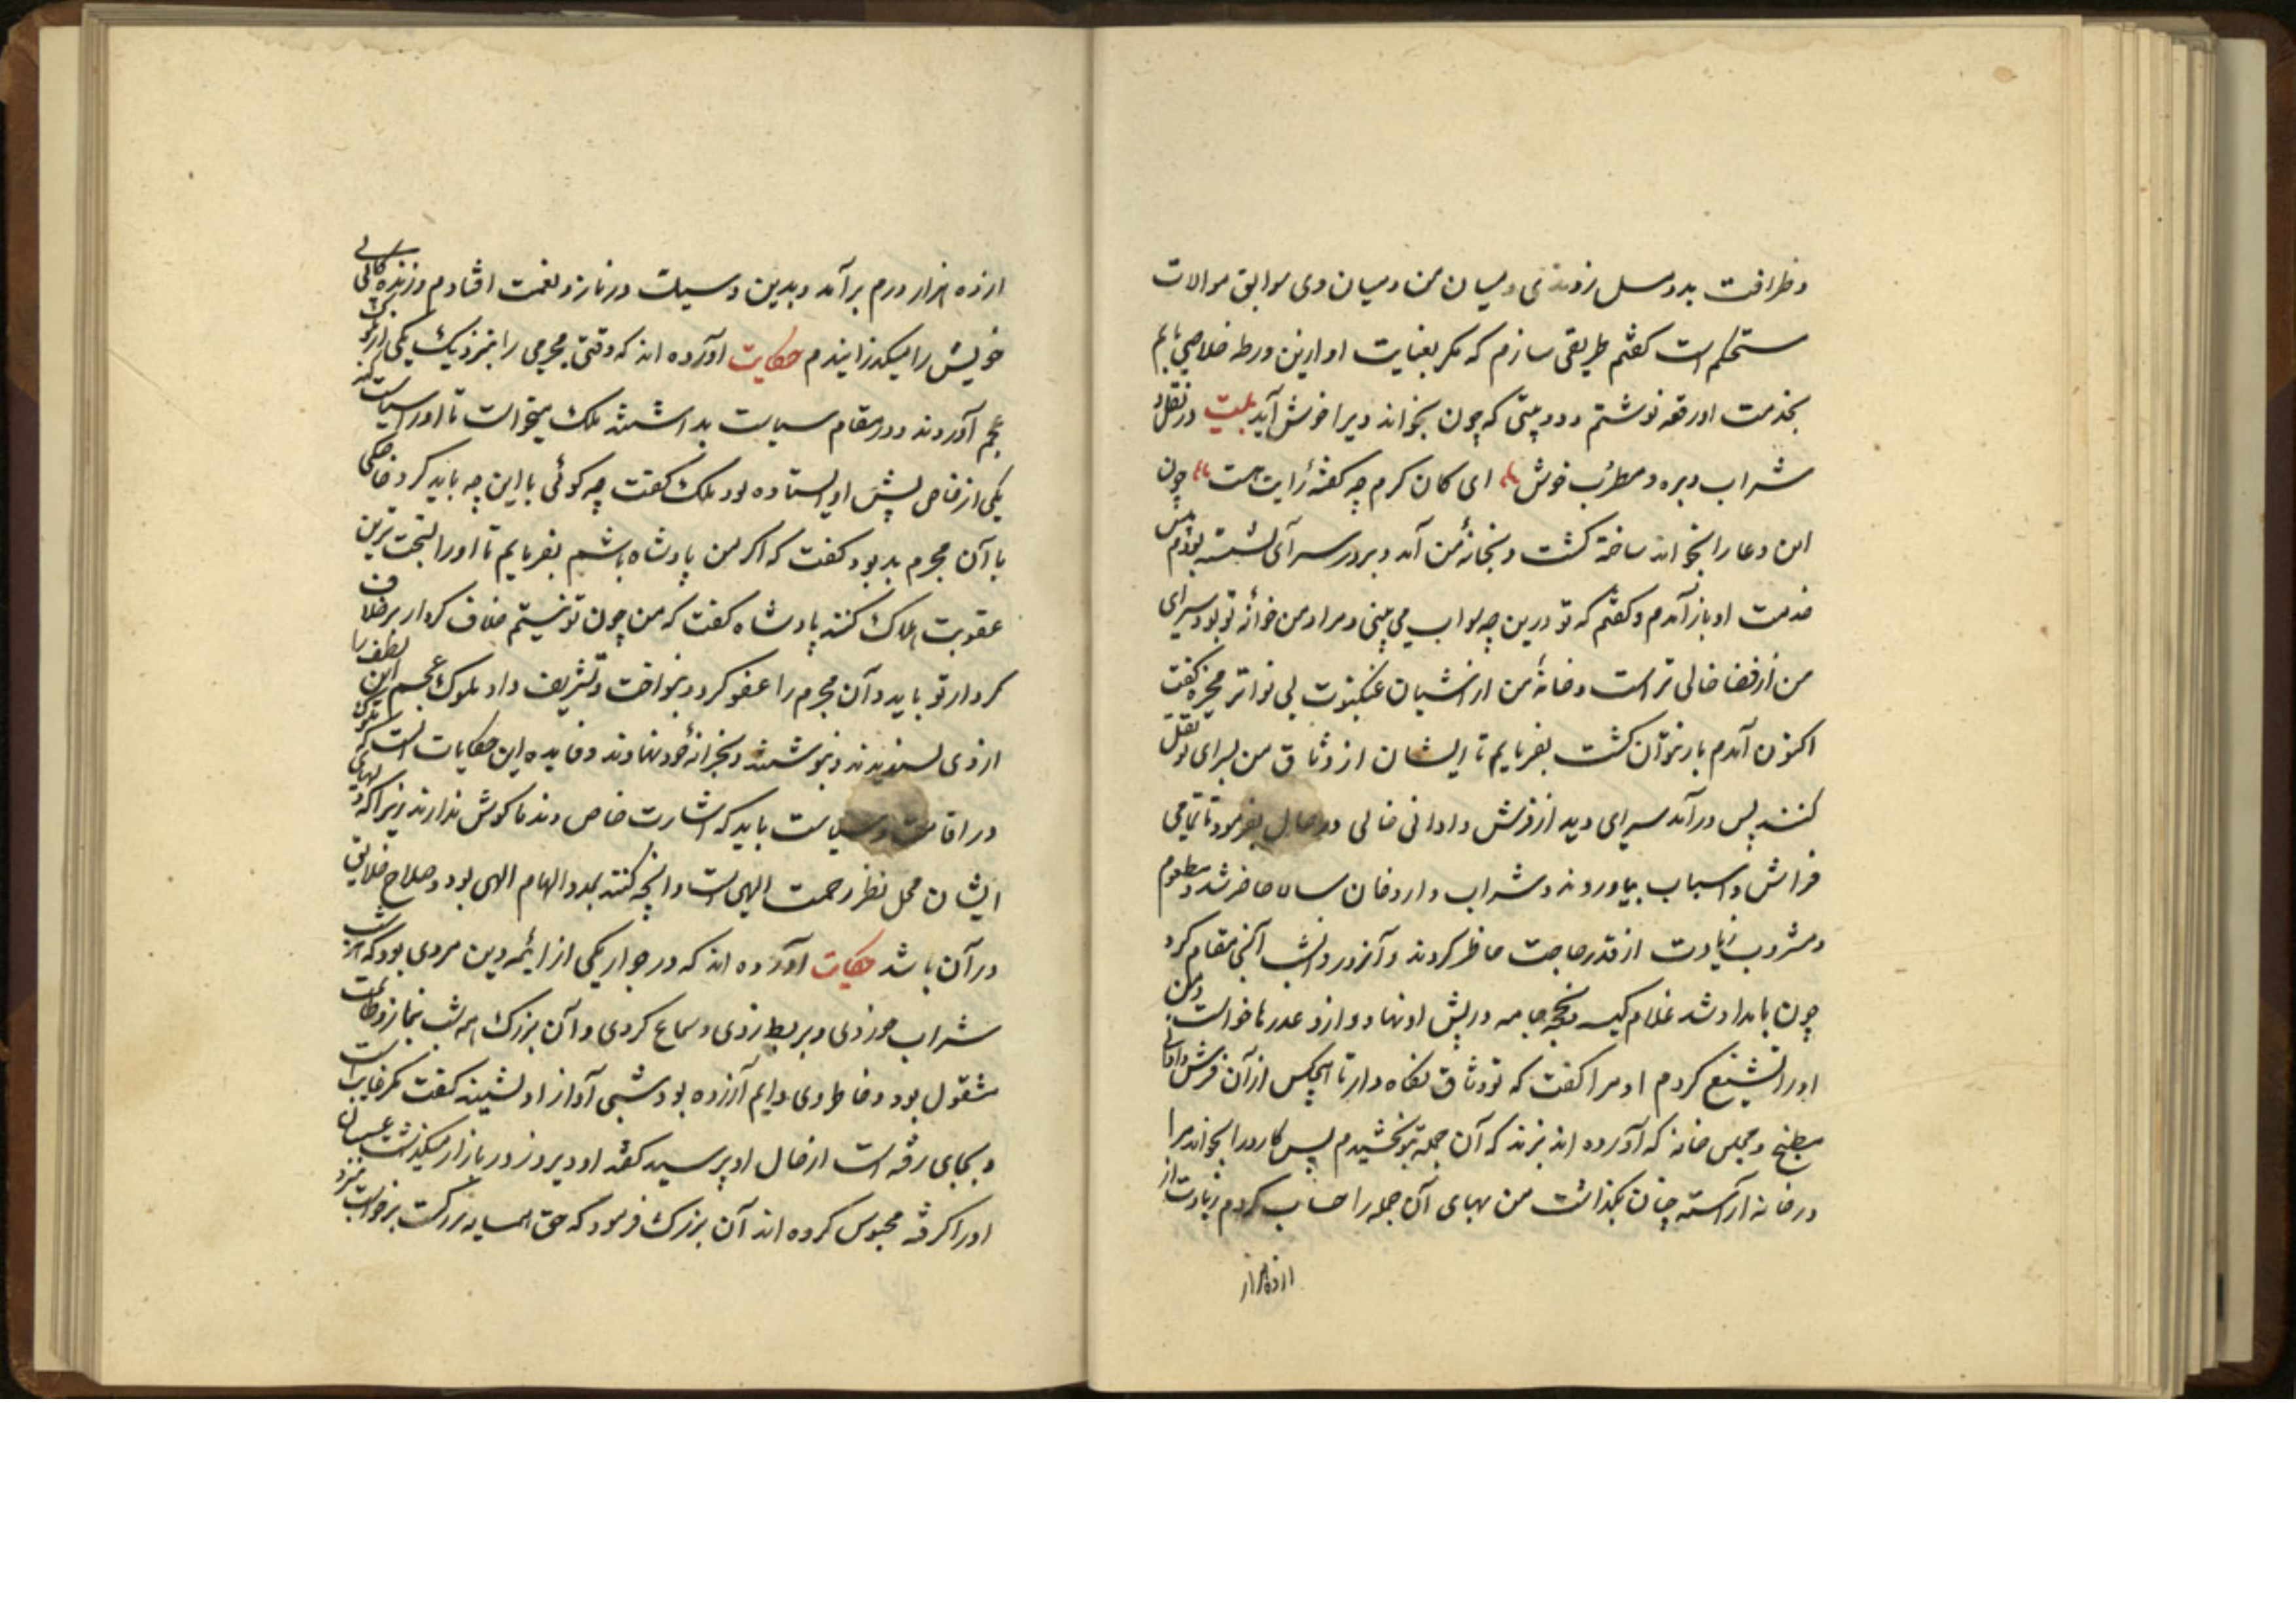 وظرافت بدو مسل زدندی و میان من و میان وی سوابق موالات
مستحکم است کفتم طریقی سازم که مکر بعنایت او ازین ورطه خلاصی یابم
بخدمت او رقعه نوشتم و دو بیتی که چون بخواند ویرا خوش آید بیت در نقل و
شراب و بره و مطرب خوش ای کان کرم چه کفتهٔ رایت هست چون
این دعا را بخواند ساخته کشت و بخانهٔ من آمد و بر در سرای نشسته بودم پس
خدمت او باز آمدم و کفتم که تو درین چه بواب می بینی و مراد من خوانه تو بود سرای
من از فضا خالی تر است و خانهٔ من از آشیان عنکبوت بی نواتر مخیره کفت
اکنون آمدم باز نتوان کشت بفرمایم تا ایشان از وثاق من بسرای تو نقل
کنند پس در آمد سرای دید از فرش و اوانی خالی در حال بفرمود تا تمامی
فراش و اسباب بیاوردند و شراب و حاضر شد و مطعوم
و مشروب زیادت از قدر حاجت حاظر کردند و آنروز و شب آنجی مقام کرد
چون بامداد شد غلام کیسه و بخجه جامه در پیش او نهاد و از و عذرها خواست و من
او را تشنیع کردم او مرا کفت که تو وثاق نکاه دار تا هیچکس از آن فرش و اوانی
مطبخ و مجلس خانه که آورده اند نبرند که آن جمله بتو بخشیدم پس را بخواند مرا
در خانه آراسته چنان بکذاشت من بهای آن جمله را حساب کردم زیادت از
از ده هزار
از ده هزار درم بر آمد و بدین وسیلت در ناز و نعمت افتادم و زندکانی
خویش را میکذرانیدم حکایت آورده اند که وقتی مجرمی را بنزدیک یکی از ملوک
عجم آوردند و در مقام سیاست بداشتند ملک میخواست تا او را سیاست کند
یکی از خاص پیش او ایستاده بود ملک کفت چه کوئی با این چه باید کرد خاصکی
با آن مجرم بد بود کفت که اکر من پادشاه باشم بفرمایم تا او را بسخت ترین
عقوبت هلاک کنند پادشاه کفت که من چون تو نیستم خلاف کردار بر خلاف
کردار تو باید و آن مجرم را عفو کرد و بنواخت و تشریف داد ملوک عجم این لطف را
از وی پسندیدند و نبوشتند و بخزانهٔ خود نهادند و فایده این حکایات آنست که
در اقامت و سیاست باید که اشارت خاص و ندما کوش ندارند زیرا که
ایشان محل نظر رحمت الهی است و آنچه کنند بمدد الهام الهی بود و صلاح خلایق
در آن باشد حکایت آورده اند که در جوار یکی از ایمه دین مردی بود که هر شب
شراب خوردی و بربط زدی و سماع کردی و آن بزرک همه شب بنماز و طاعت
مشغول بود و خاطر وی دایم آزرده بود شبی آواز او نشنید کفت مکر غایب است
و بجای رفته است از حال او پرسید کفتند او دیروز در بازار میکذشت عسسان
او را کرفته محبوس کرده اند آن بزرک فرمود که حق همسایه بزرکست برخواست بنزد